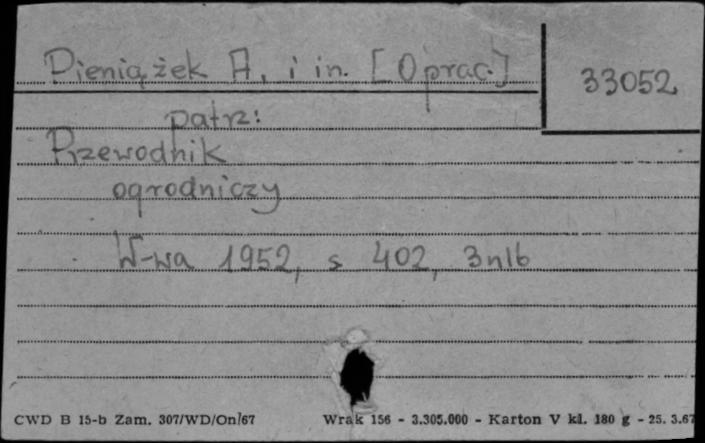 Pieniążek A. i in. [Oprac.]
33052
patrz:
Przewodnik
ogrodniczy
W-wa 1952, s 402, 3nlb
CWD B 15-b Zam. 307/WD/On/67 Wrak 156 - 3.305.000 - Karton V kl. 180 g - 25. 3.67